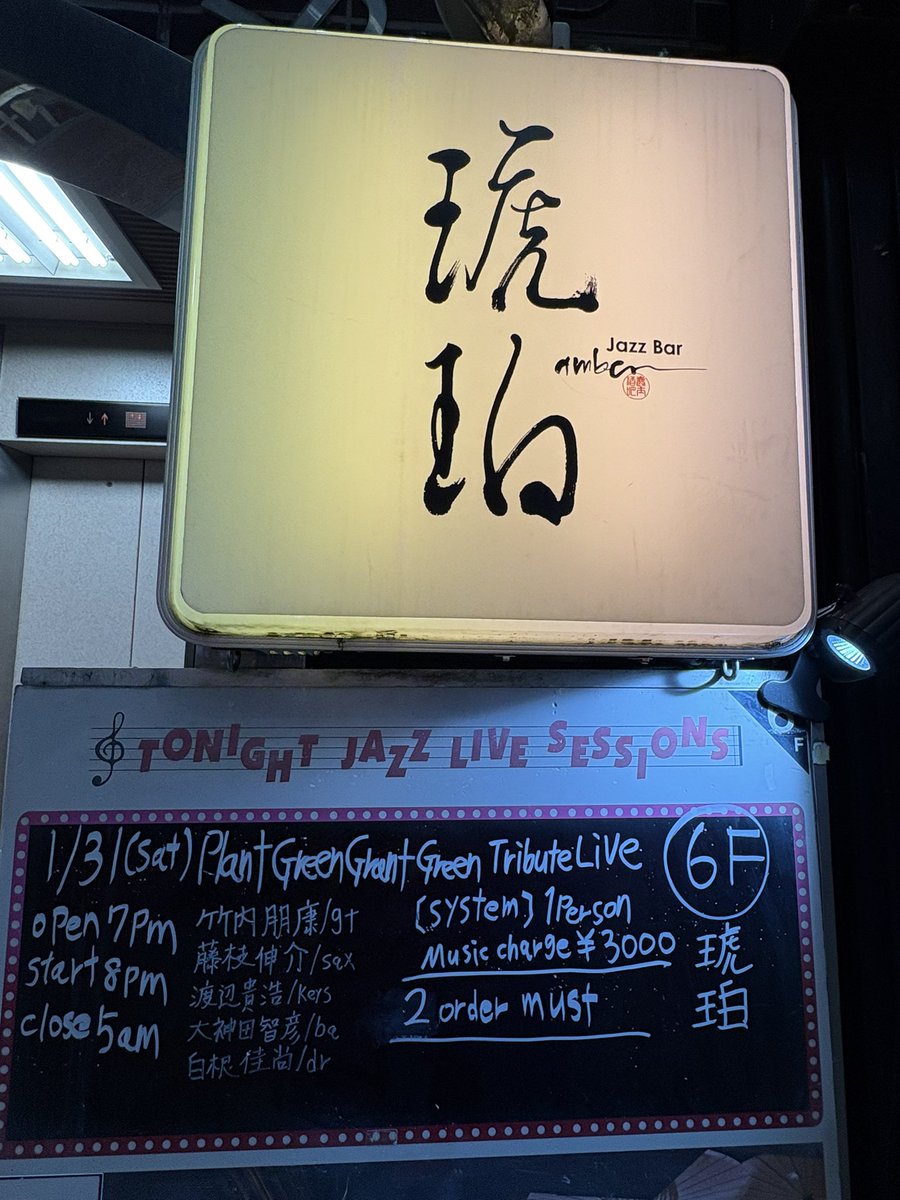 琥珀
Jazz Bar
amber
TONIGHT JAZZ LIVE SESSIONS
6F
1/31(sat) Plant Green Grant Green Tribute Live
open 7pm
start 8pm
close 5am
竹内朋康/gt
藤枝伸介/sax
渡辺貴浩/keys
大神田智彦/ba
白根佳尚/dr
[system] 1Person
Music charge ¥3000
2 order must
6F
琥珀